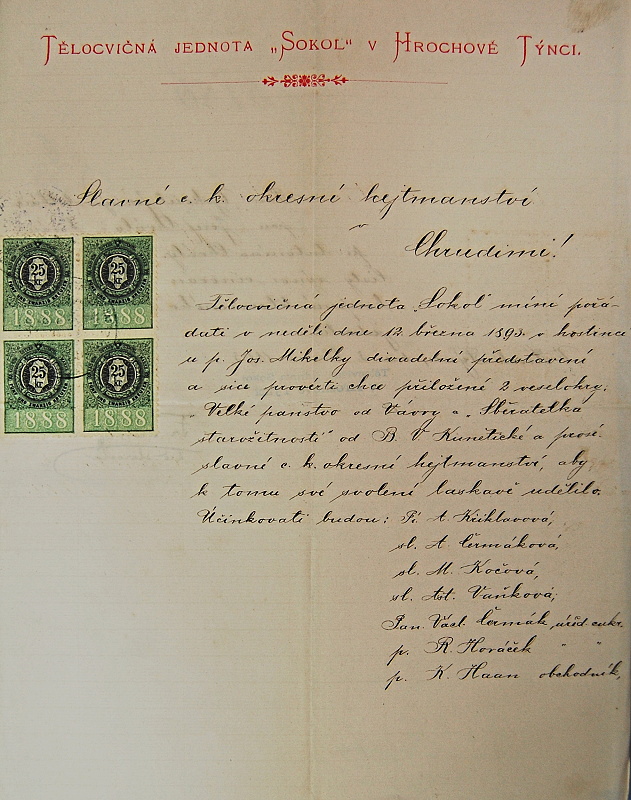 TĚLOCVIČNÁ JEDNOTA „SOKOL“ V HROCHOVĚ TÝNCI.
Slavné c. k. okresní hejtmanství
v
Chrudimi!
25 kr
25 kr
1888
1888
25 kr
25 kr
1888
1888
Tělocvičná jednota „Sokol“ míní pořá-
dati v neděli dne 12. března 1893 v hostinci
u p. Jos. Mikelky divadelní představení
a sice provésti chce přiložené 2 veselohry:
„Velké panství“ od Vávry a „Sběratelka
starožitností“ od B. V. Kunětické a prosí
slavné c. k. okresní hejtmanství, aby
k tomu své svolení laskavě udělilo.
Účinkovati budou: Pí. A. Křiklavová,
sl. A. Čermáková,
sl. M. Kočová,
sl. Ant. Vaňková,
Pan. Václ. Čermák, úřed. cukr.
p. R. Horáček „ „
p. K. Haan obchodník,